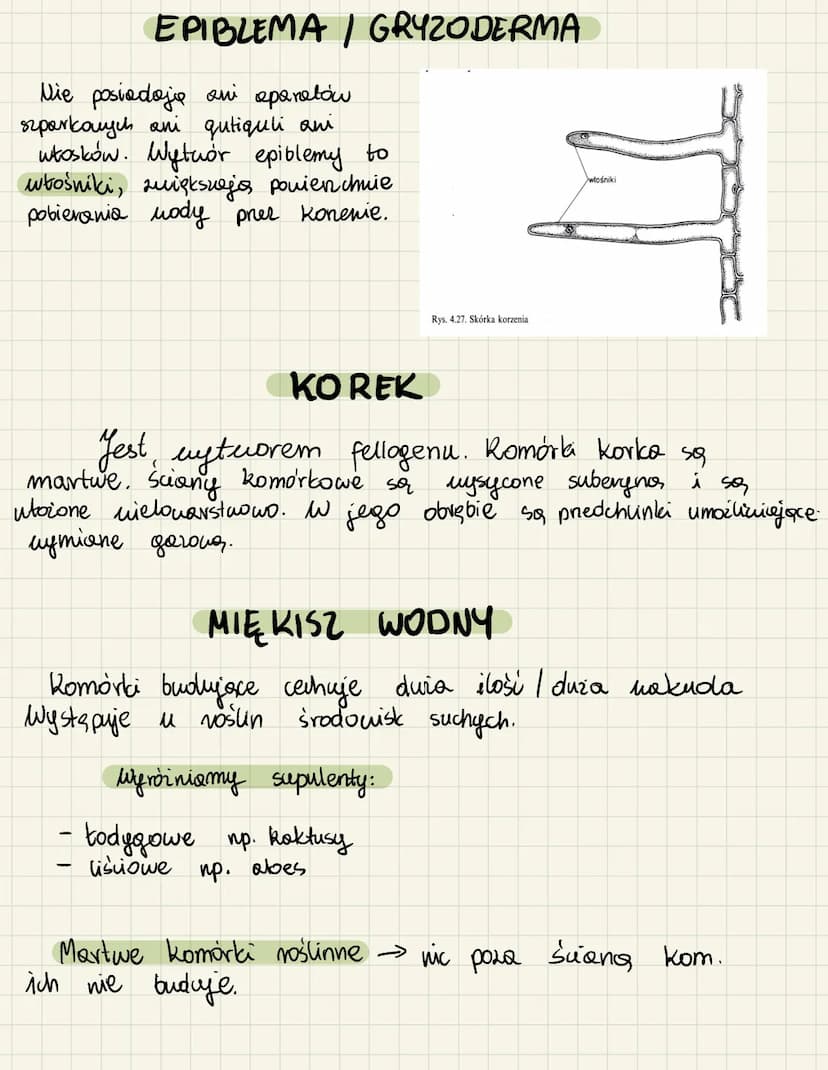 EPIBLEMA / GRYZODERMA
Nie posiadają ani aparatów
szparkowych ani qutiquli ani
włosków. Wytwór epiblemy to
włośniki, zwiększają powierzchnie
pobierania wody przez korzenie.
włośniki
Rys. 4.27. Skórka korzenia
KOREK
Jest wytworem fellogenu. Komórki korka są
martwe. Ściany komórkowe są wysycone suberyną i są
ułożone wielowarstwowo. W jego obrębie są przedchlinki umożliwiające
wymianę gazową.
MIĘKISZ WODNY
Komórki budujące cechuje duża ilość / duża wakuola
Występuje u roślin środowisk suchych.
Wyróżniamy supulenty:
- łodygowe np. kaktusy
- liściowe np. aloes
Martwe komórki roślinne → nic poza ścianą kom.
ich nie buduje.